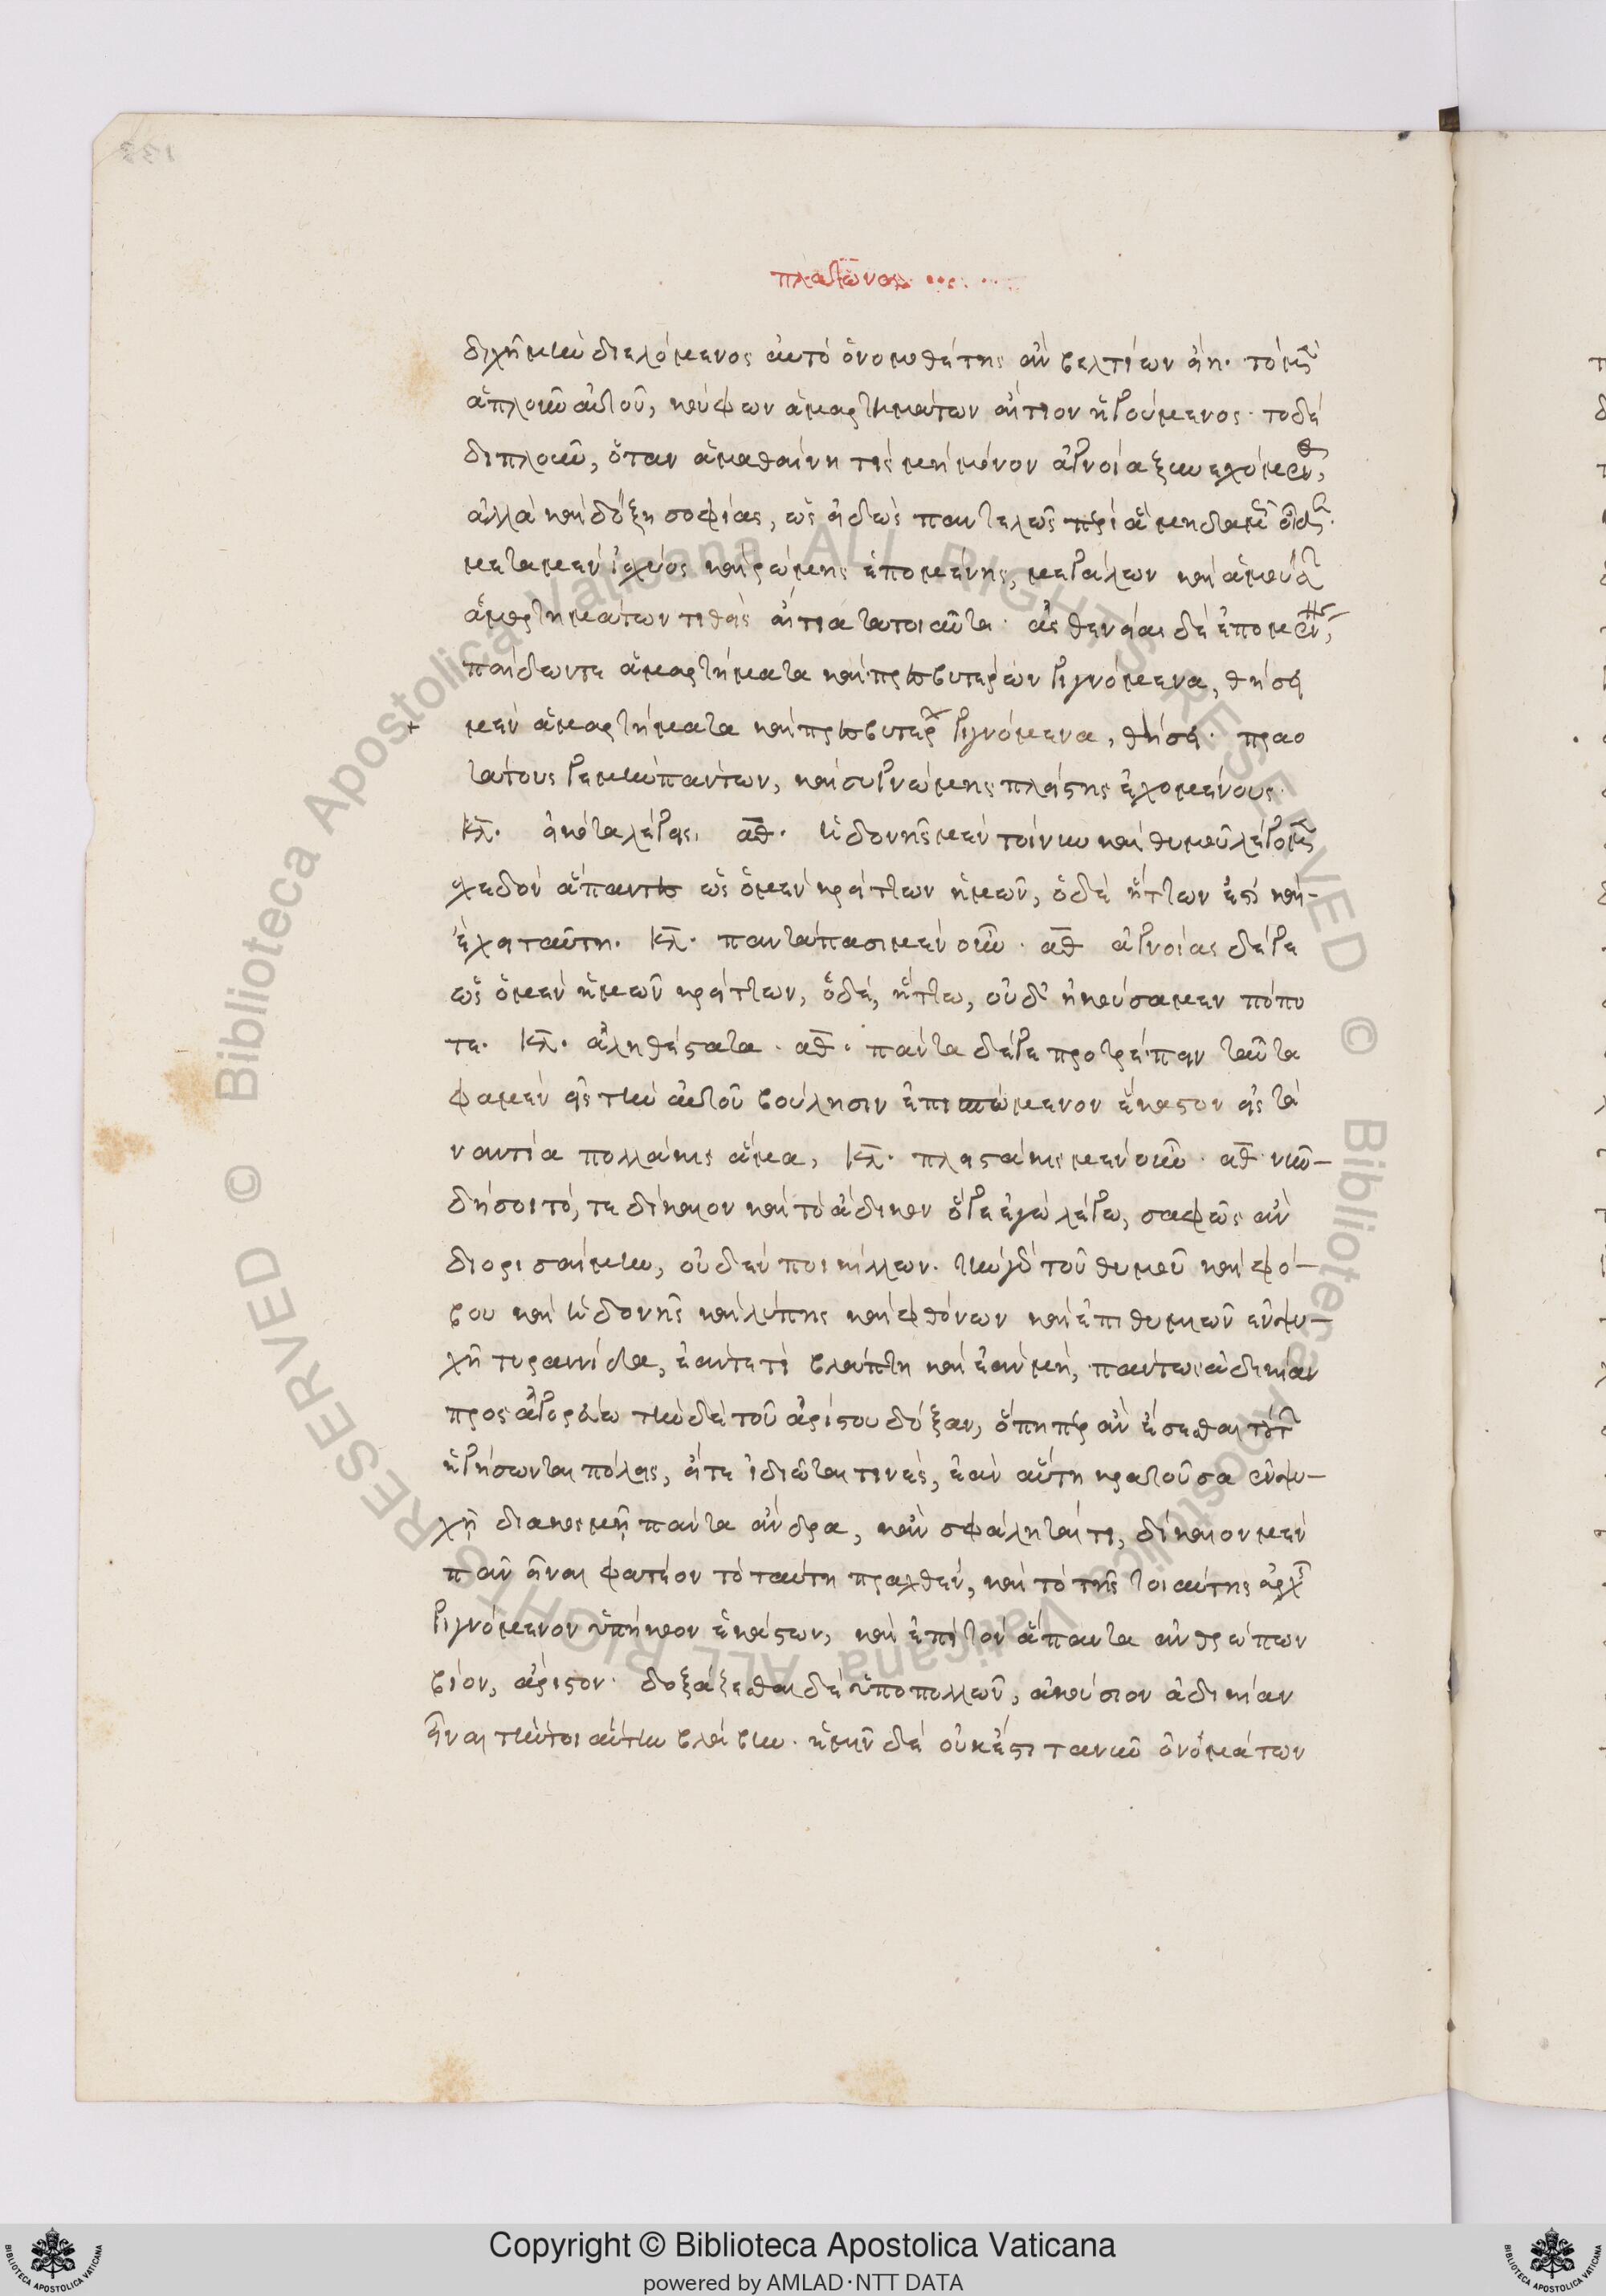 πλάτωνος
διχῆ μὴν διελόμενος αὐτὸ ὁ νομοθέτης ἂν βελτίων εἴη. τὸ μὲν
ἁπλοῦν αὐτοῦ, κούφων ἁμαρτημάτων αἴτιον ἡγούμενος. τὸ δὲ
διπλοῦν, ὅταν ἀμαθαίνη τίς μὴ μόνον ἀγνοία ξυνεχόμενος,
ἀλλὰ καὶ δόξη σοφίας, ὡς εἰδὼς παντελῶς περὶ ἃ μηδαμῶς οἶδεν.
μετὰ μὲν ἰσχύος καὶ ῥώμης ἑπομένης, μεγάλων καὶ ἀμούσων
ἁμαρτημάτων τιθεὶς αἴτια τὰ τοιαῦτα. ἀσθενείας δὲ ἑπομένης,
παίδων τε ἁμαρτήματα καὶ πρεσβυτέρων γιγνόμενα, θήσει
μὲν ἁμαρτήματα καὶ πρεσβυτέρων γιγνόμενα, θήσει. πραο
τάτους γε μὴν πάντων, καὶ συγνώμης πλείστης ἐχομένους.
κλ. εἰκότα λέγεις. αθ. ἡδονῆς μὲν τοίνυν καὶ θυμοῦ λέγομεν
σχεδὸν ἅπαντες ὡς ὁ μὲν κρείττων ἡμῶν, ὁ δὲ ἥττων ἐστὶ καὶ
ἔχει ταύτη. κλ. παντάπασι μὲν οὖν. αθ ἀγνοίας δέ γε
ὡς ὁ μὲν ἡμῶν κρείττων, ὁ δὲ, ἥττω, οὐδ' ἠκούσαμεν πόπο
τε. κλ. ἀληθέστατα. αθ. πάντα δέ γε προτρέπειν ταῦτα
φαμὲν εἰς τὴν αὐτοῦ βούλησιν ἐπισπώμενον ἕκαστον εἰς τὰ
ναντία πολλάκις ἅμα, κλ. πλειστάκις μὲν οὖν. αθ. νῦν
δή σοι τό, τε δίκαιον καὶ τὸ ἄδικον ὅ γε ἐγὼ λέγω, σαφῶς ἂν
διορισαίμην, οὐδὲν ποικίλλων. τὴν γὰρ τοῦ θυμοῦ καὶ φό
βου καὶ ἡδονῆς καὶ λύπης καὶ φθόνων καὶ ἐπιθυμιῶν ἐν ψυ
χῆ τυραννίδα, ἐάν τε τι βλάπτη καὶ ἐὰν μὴ, πάντως ἀδικίαν
προσαγορεύω τὴν δὲ τοῦ ἀρίστου δόξαν, ὅπη πὲρ ἂν ἔσεσθαι τούτων
ἡγήσωνται πόλεις, εἴτε ἰδιῶται τινὲς, ἐὰν αὕτη κρατοῦσα ἐν ψυ
χῇ διακοσμῇ πάντα ἄνδρα, κἂν σφάληταί τι, δίκαιον μὲν
πᾶν εἶναι φατέον τὸ ταύτη πραχθὲν, καὶ τὸ τῆς τοιαύτης ἀρχῆς
γιγνόμενον ὑπήκοον ἑκάστων, καὶ ἐπὶ τὸν ἅπαντα ἀνθρώπων
βίον, ἄριστον. δοξάζεσθαι δὲ ὑπὸ πολλῶν, ἀκούσιον ἀδικίαν
εἶναι τὴν τοιαύτην βλάβην. ἡμῖν δὲ οὐκ ἔστι τανῦν ὀνομάτων
Copyright © Biblioteca Apostolica Vaticana
powered by AMLAD·NTT DATA